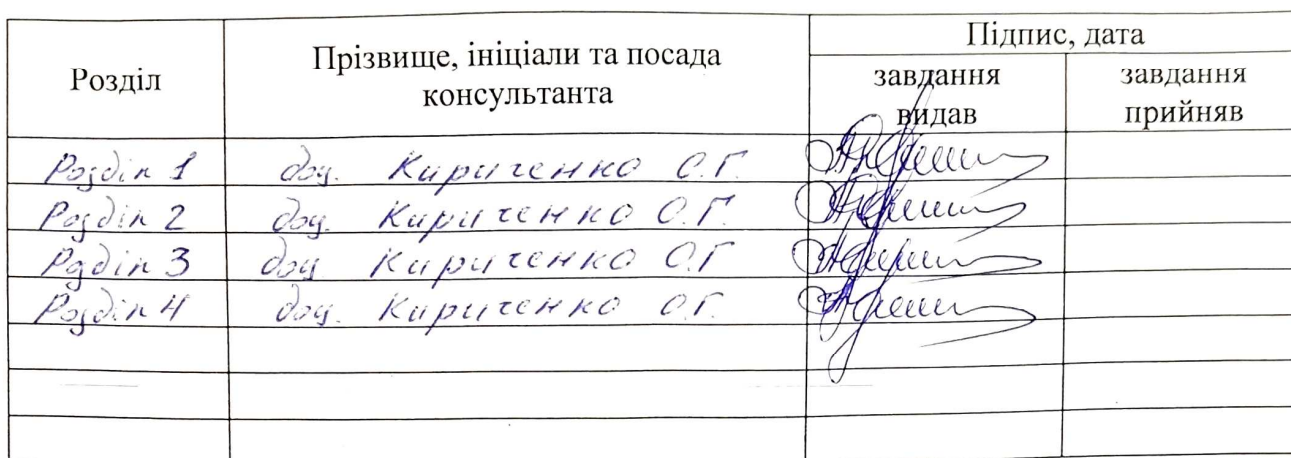 Розділ
Прізвище, ініціали та посада
консультанта
Підпис, дата
завдання
видав
завдання
прийняв
Розділ 1 доц. Кириченко О.Г.
Розділ 2 доц. Кириченко О.Г.
Розділ 3 доц. Кириченко О.Г
Розділ 4 доц. Кириченко О.Г.